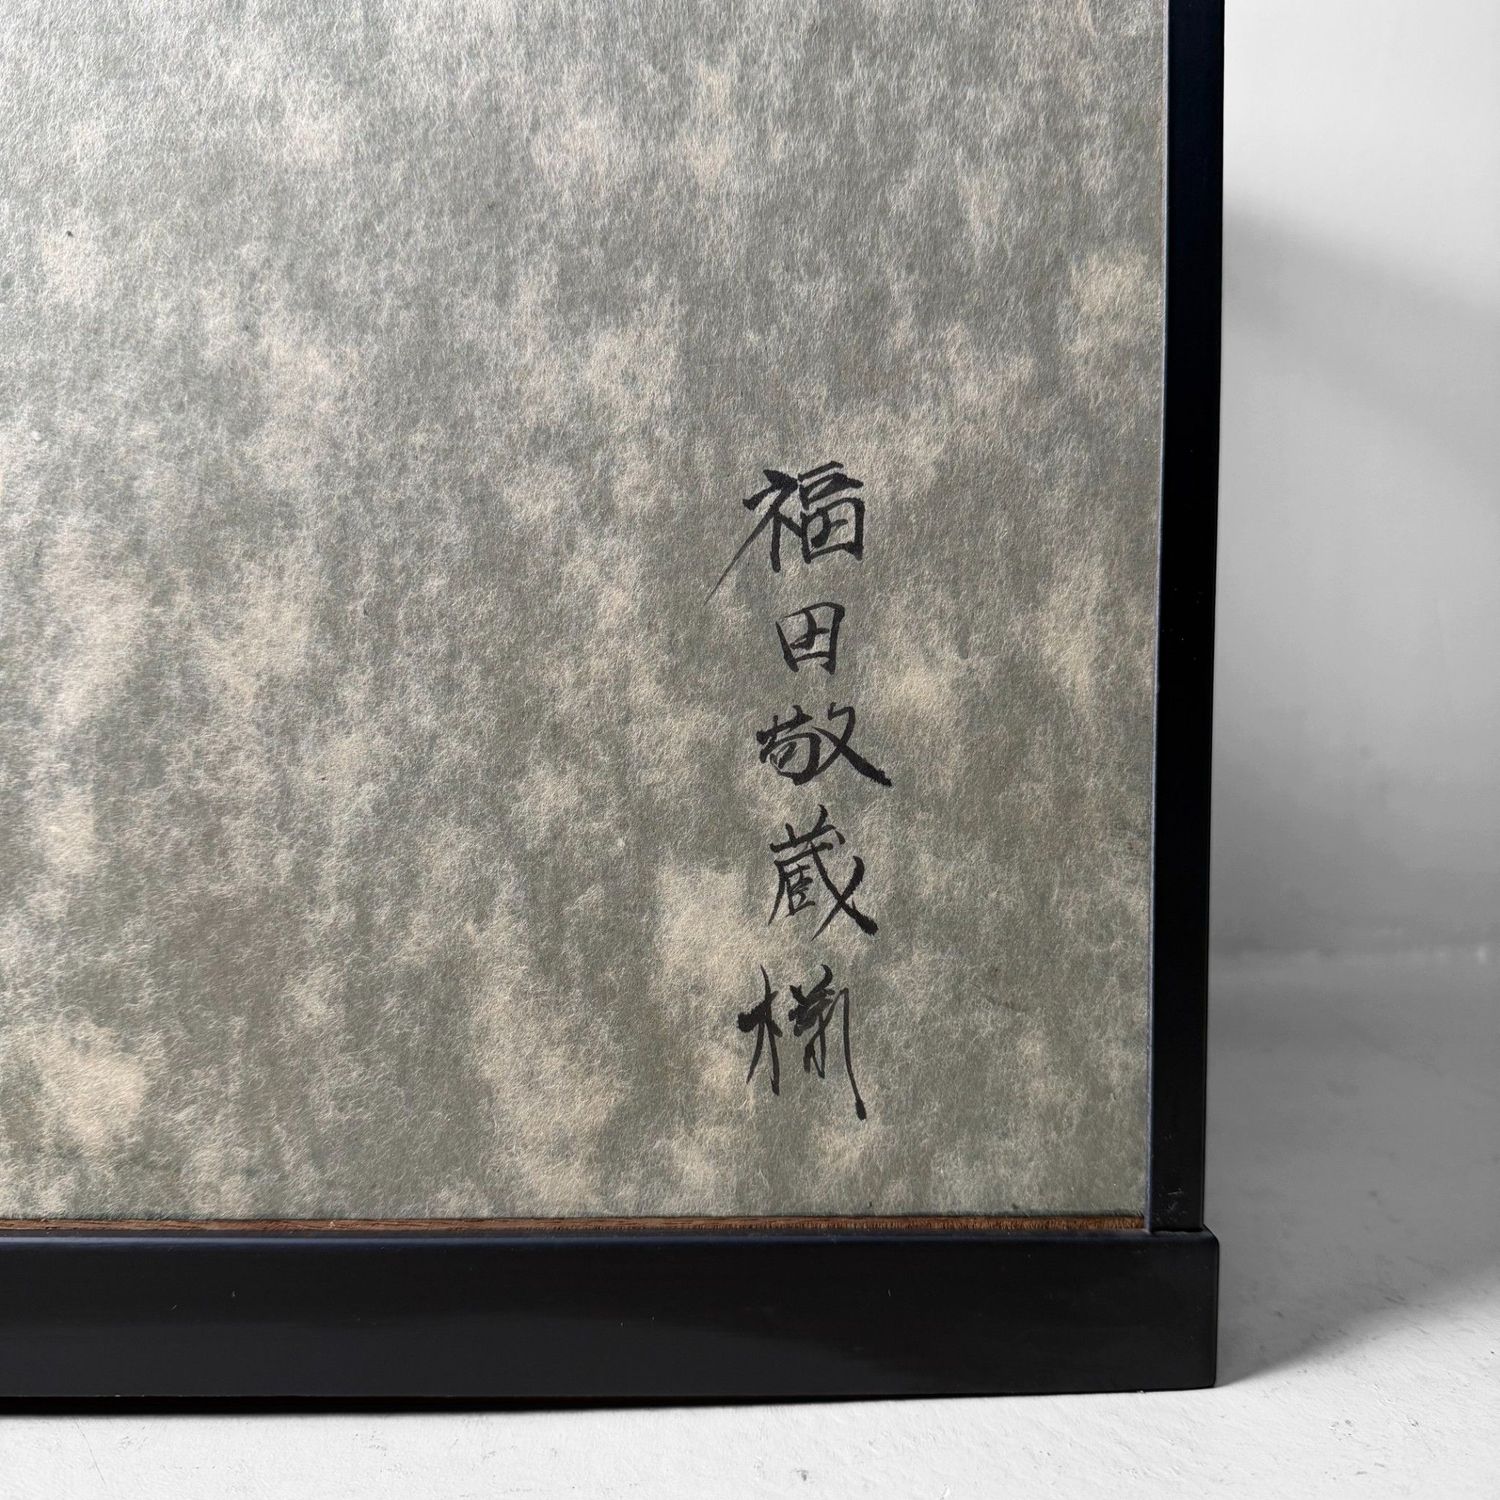 福田敬蔵様